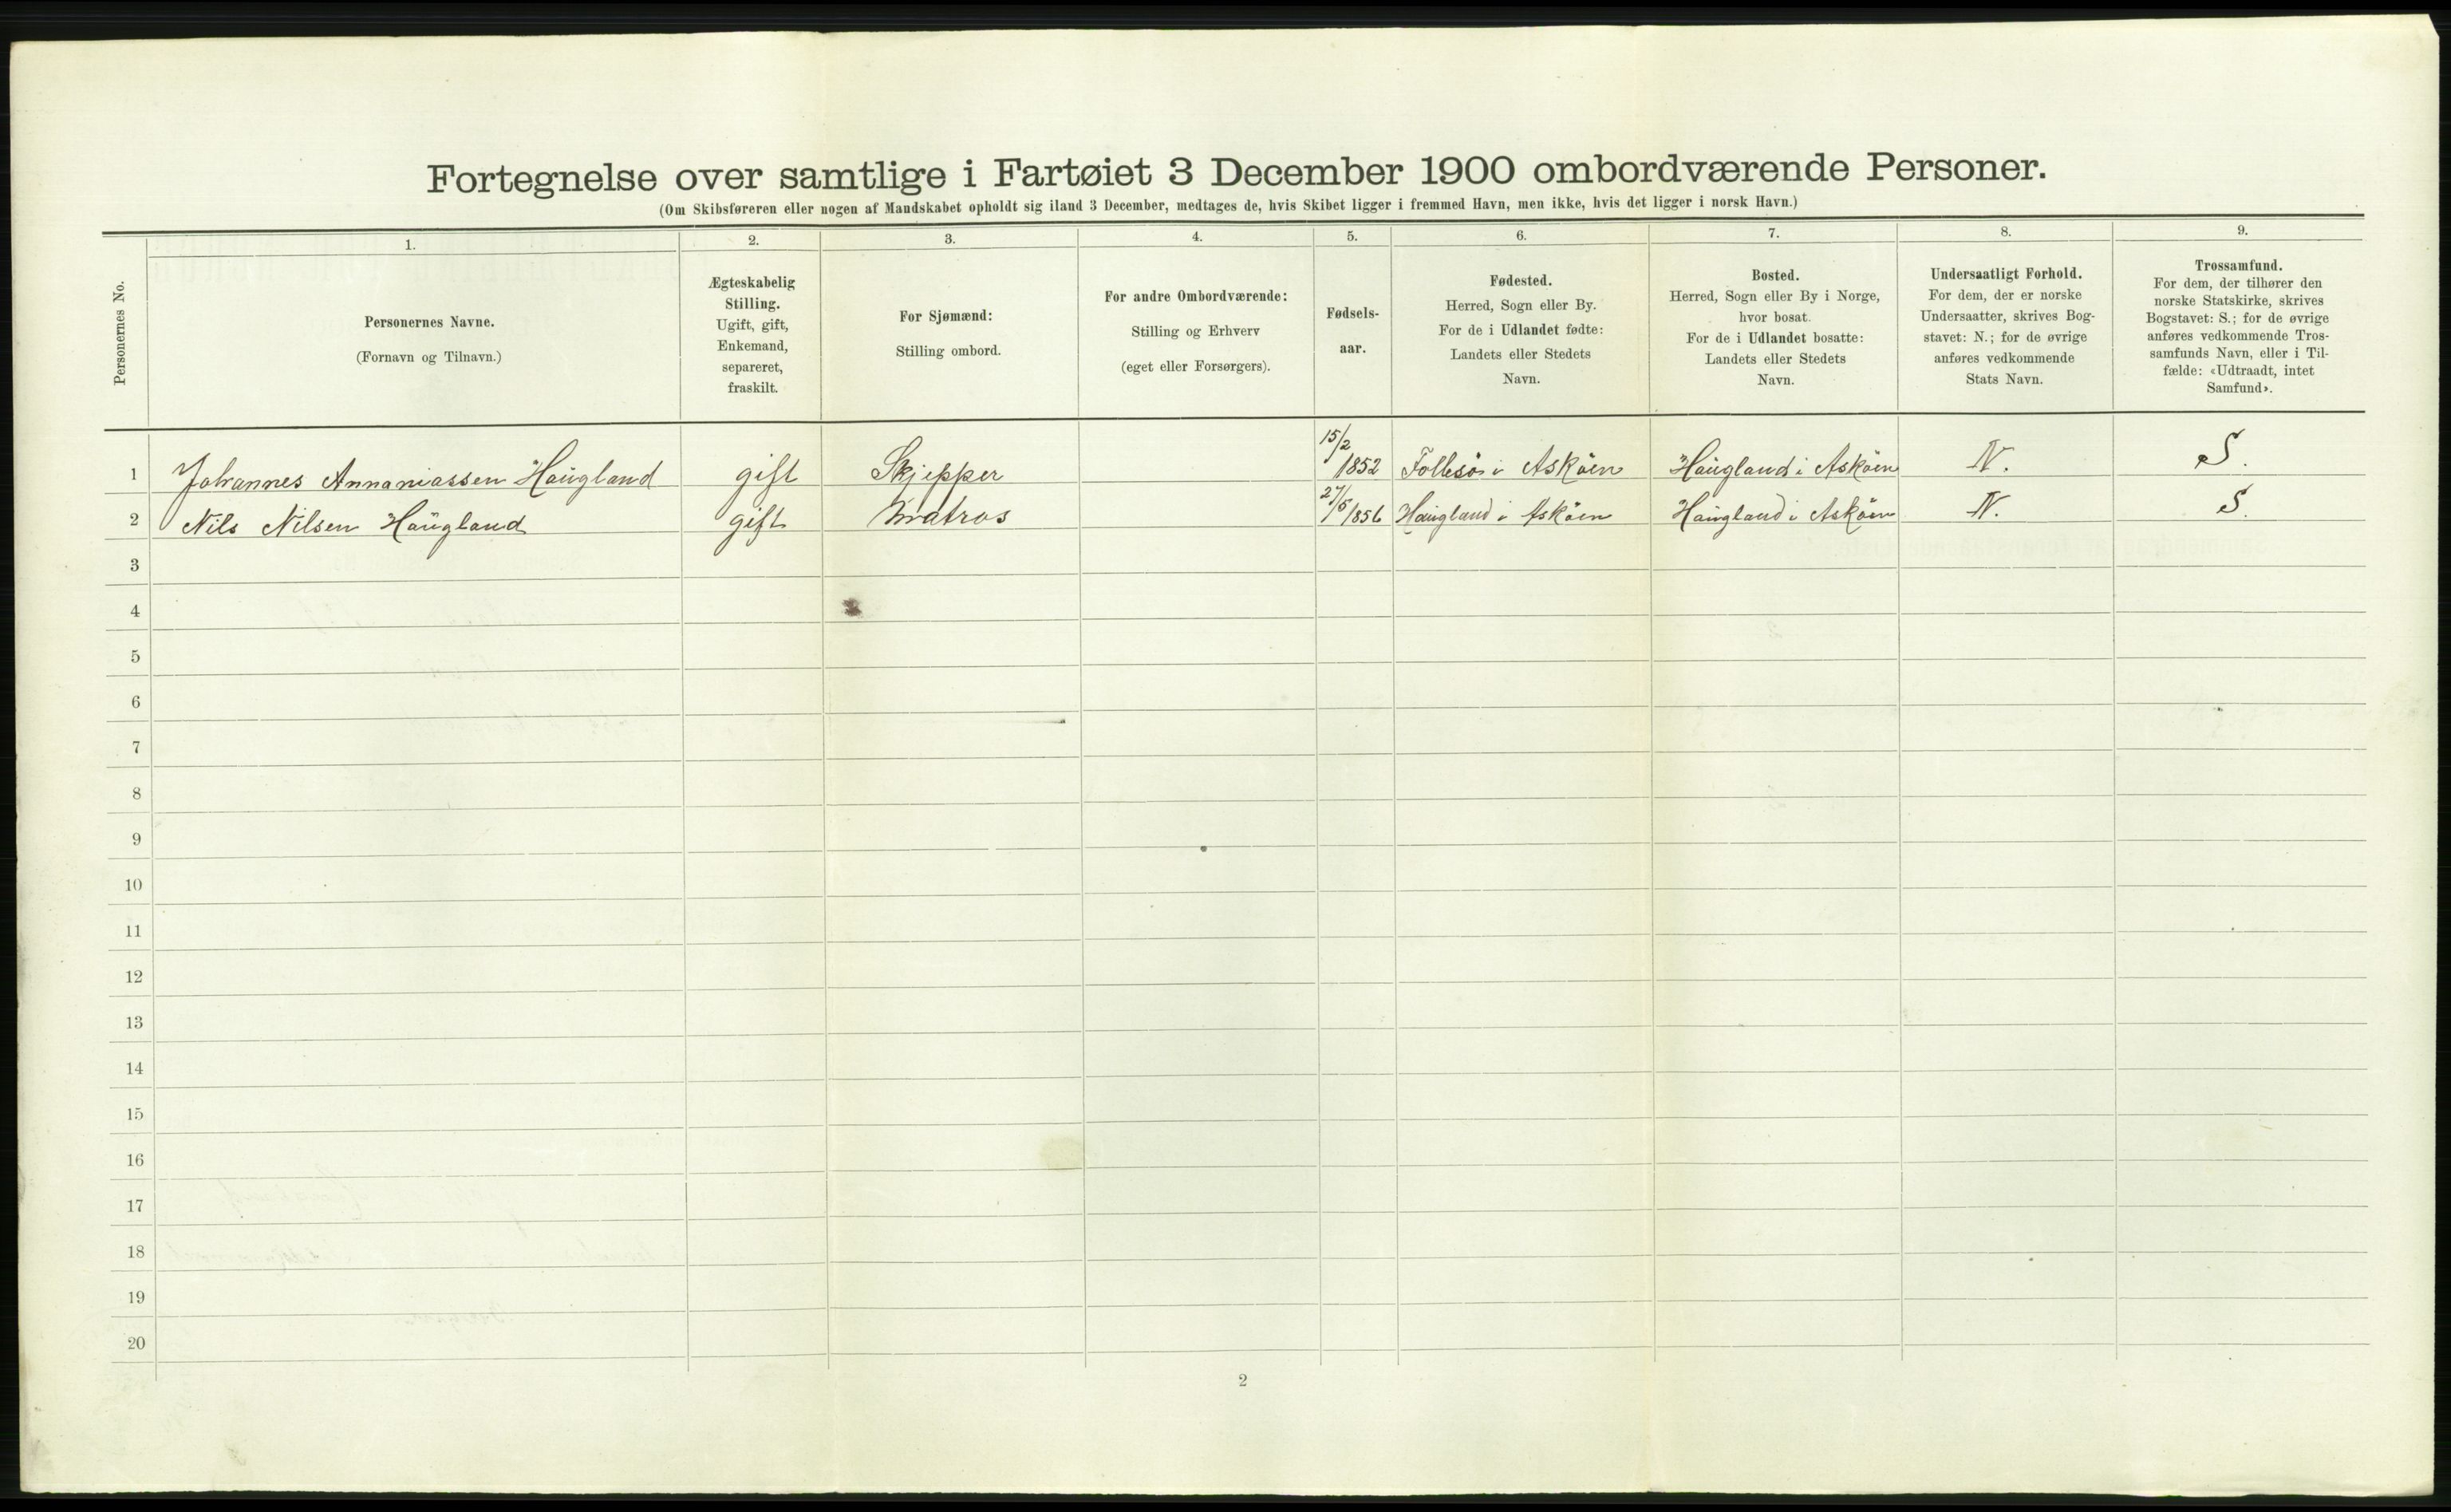 Fortegnelse over samtlige i Fartøiet 3 December 1900 ombordværende Personer.
(Om Skibsføreren eller nogen af Mandskabet opholdt sig iland 3 December, medtages de, hvis Skibet ligger i fremmed Havn, men ikke, hvis det ligger i norsk Havn.)
Personernes No.
1.
Personernes Navne.
(Fornavn og Tilnavn.)
2.
Ægteskabelig
Stilling.
Ugift, gift,
Enkemand,
separeret,
fraskilt.
3.
For Sjømænd:
Stilling ombord.
4.
For andre Ombordværende:
Stilling og Erhverv
(eget eller Forsørgers).
5.
Fødsels-
aar.
6.
Fødested.
Herred, Sogn eller By.
For de i Udlandet fødte:
Landets eller Stedets
Navn.
7.
Bosted.
Herred, Sogn eller By i Norge,
hvor bosat.
For de i Udlandet bosatte:
Landets eller Stedets
Navn.
8.
Undersaatligt Forhold.
For dem, der er norske
Undersaatter, skrives Bog-
stavet: N.; for de øvrige
anføres vedkommende
Stats Navn.
9.
Trossamfund.
For dem, der tilhører den
norske Statskirke, skrives
Bogstavet: S.; for de øvrige
anføres vedkommende Tros-
samfunds Navn, eller i Til-
fælde: «Udtraadt, intet
Samfund».
1 Johannes Annaniassen Haugland gift Skjepper 15/2 1852 Follesö i Asköen Haugland i Asköen N. S.
2 Nils Nilsen Haugland gift Matros 27/5 1856 Haugland i Asköen Haugland i Asköen N. S.
3
4
5
6
7
8
9
10
11
12
13
14
15
16
17
18
19
20
2